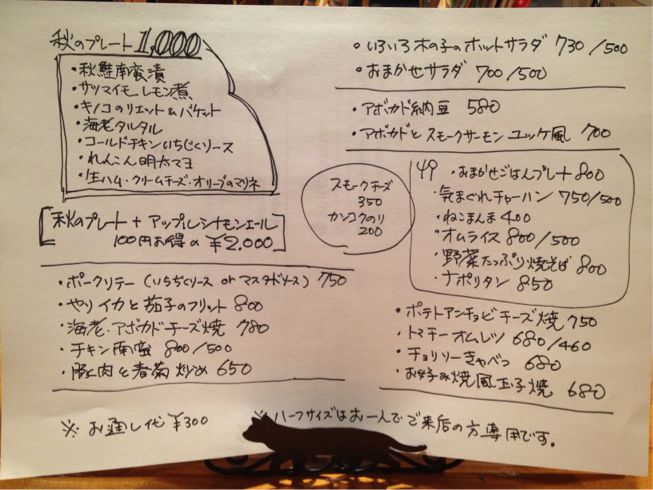 秋のプレート 1,000
・秋鮭南蛮漬
・サツマイモレモン煮
・キノコのリエット&バケット
・海老タルタル
・コールドチキンいちじくソース
・れんこん明太マヨ
・生ハム・クリームチーズ・オリーブのマリネ
秋のプレート + アップルシナモンエール
100円お得の ¥2,000
・ポークソテー (いちぢくソース or マスタードソース) 750
・ヤリイカと茄子のフリット 800
・海老・アボカドチーズ焼 780
・チキン南蛮 800/500
・豚肉と春菊炒め 650
※ お通し代 ¥300
・いろいろ木の子のホットサラダ 730/500
・おまかせサラダ 700/500
・アボカド納豆 580
・アボカドとスモークサーモン ユッケ風 700
スモークチーズ
350
カンコクのり
200
・おまかせごはんプレート 800
・気まぐれチャーハン 750/500
・ねこまんま 400
・オムライス 800/500
・野菜たっぷり焼そば 800
・ナポリタン 850
・ポテトアンチョビチーズ焼 750
・トマチーオムレツ 680/460
・チョリソーきゃべつ 680
・お好み焼風玉子焼 680
※ハーフサイズはお一人でご来店の方専用です。